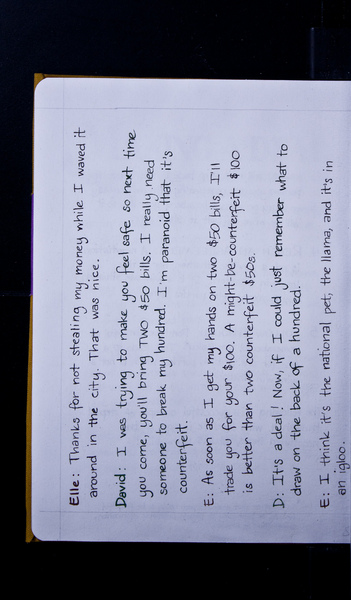 Elle: Thanks for not stealing my money while I waved it
around in the city. That was nice.
David: I was trying to make you feel safe so next time
you come, you'll bring TWO $50 bills. I really need
someone to break my hundred. I'm paranoid that it's
counterfeit.
E: As soon as I get my hands on two $50 bills, I'll
trade you for your $100. A might-be-counterfeit $100
is better than two counterfeit $50s.
D: It's a deal! Now, if I could just remember what to
draw on the back of a hundred.
E: I think it's the national pet, the llama, and it's in
an igloo.